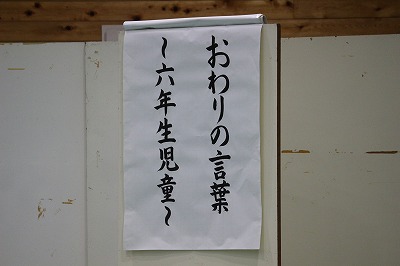 おわりの言葉
～六年生児童～